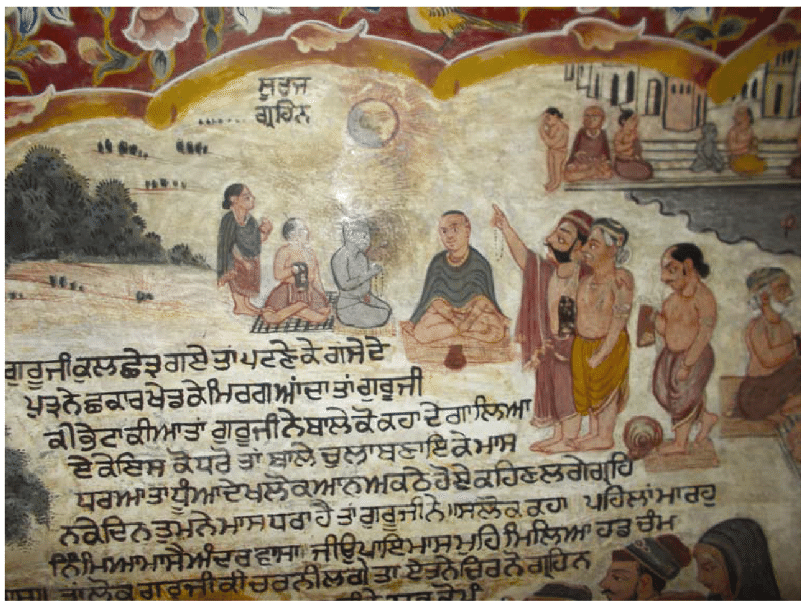 ਸੂਰਜ
ਗ੍ਰਹਿਨ
ਗੁਰੂਜੀ ਕੁਲਛੇਤ੍ਰ ਗਏ ਤਾਂ ਪਟਣੇ ਕੇ ਰਾਜੇ ਦੇ
ਪੁਤ੍ਰ ਨੇ ਛਕਾਰ ਖੇਡ ਕੇ ਮਿਰਗ ਆਂਦਾ ਤਾਂ ਗੁਰੂਜੀ
ਕੀ ਭੇਟਾ ਕੀਆ ਤਾਂ ਗੁਰੂਜੀ ਨੇ ਬਾਲੇ ਕੋ ਕਹਾ ਦੇਗਾ ਲਿਆ
ਦੇ ਕੇ ਇਸ ਕੋ ਧਰੋ ਤਾਂ ਬਾਲੇ ਚੁਲਾ ਬਣਾਇ ਕੇ ਮਾਸ
ਧਰਆ ਤਾ ਧੂੰਆ ਦੇਖ ਲੋਕ ਆਨ ਅਕਠੇ ਹੋਏ ਕਹਿਣ ਲਗੇ ਗ੍ਰਹਿ
ਨ ਕੇ ਦਿਨ ਤੁਮਨੇ ਮਾਸ ਧਰਾ ਹੈ ਤਾਂ ਗੁਰੂਜੀ ਨੇ ॥ ਸਲੋਕ ਕਹਾ ਪਹਿਲਾਂ ਮਾਰਹੁ
ਨਿੰਮਿਆ ਮਾਸੈ ਅੰਦਰ ਵਾਸਾ। ਜੀਉ ਪਾਇ ਮਾਸ ਮੁਹਿ ਮਿਲਿਆ ਹਡ ਚੰਮ
ਤਾਂ ਲੋਕ ਗੁਰੂਜੀ ਕੀ ਚਰਨੀ ਲਗੇ ਤਾਂ ਏਤਨੇ ਚਿਰ ਨੋ ਗ੍ਰਹਿਨ